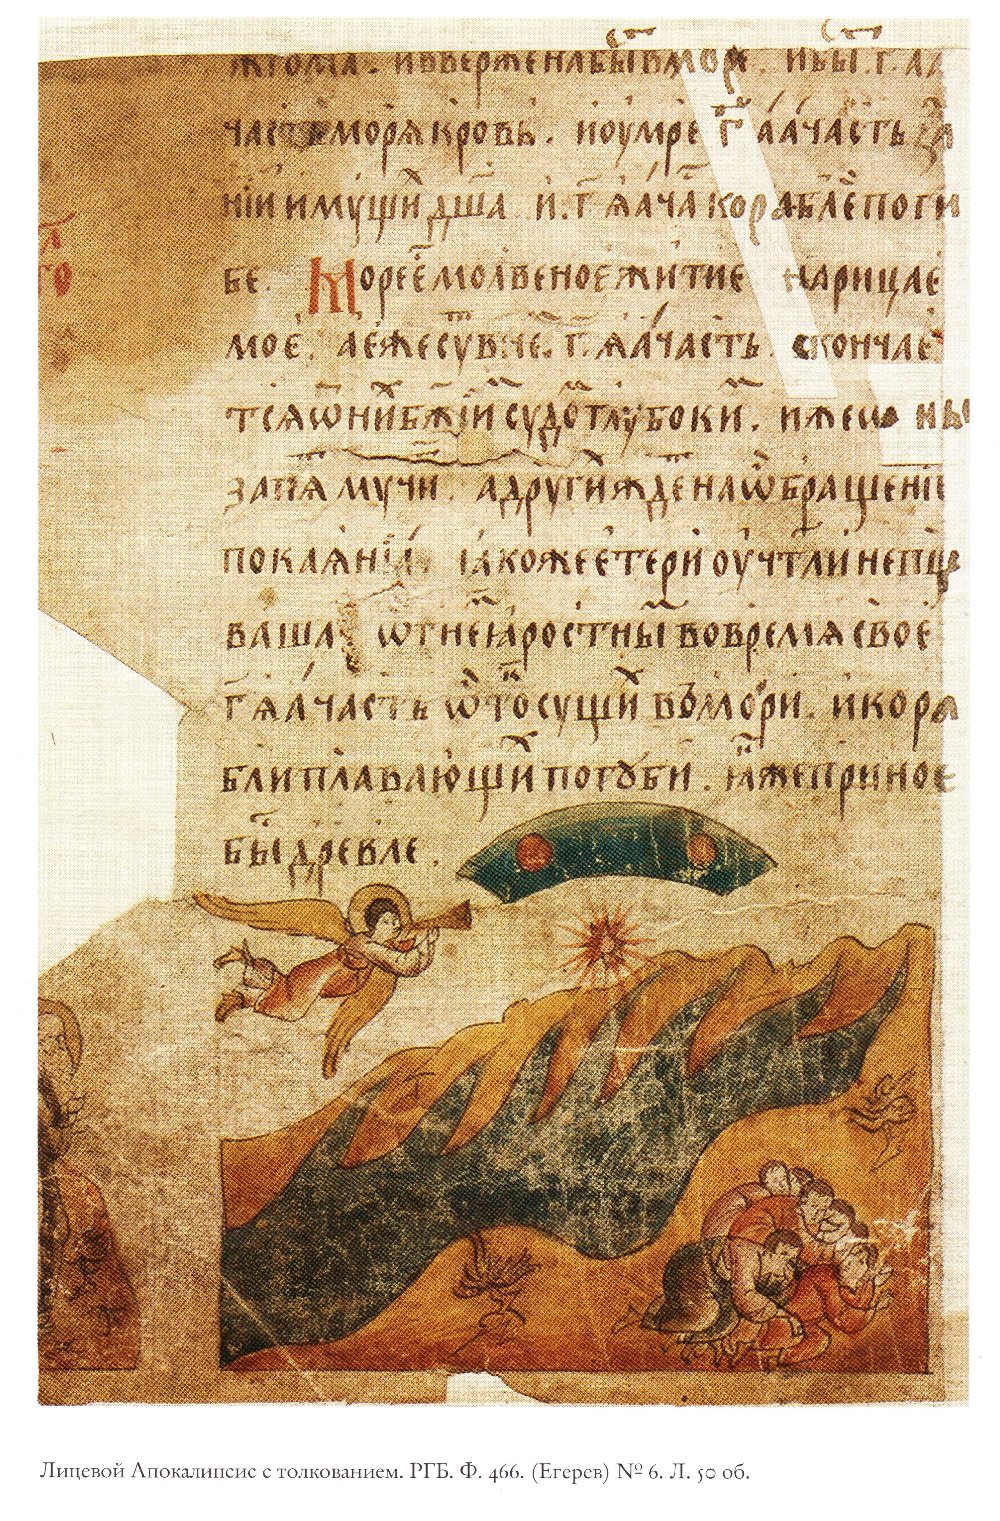 жгома. и ввержена бы в море. и бы. г҃. аѧ
часть морѧ кровь. и оумре г҃ аѧ часть
нїи имущи дш҃а и. г҃ ѧѧ ча корабле поги
бе. Море є молвеное житие нарицае
моє. а еже сущее. г҃. ѧѧ часть. скончає
тсѧ ѿ ни бж҃їи судо глубоки. иже ѿ
запѧ мучи. а другиѧ же на ѡбращениє
покаѧнїѧ ꙗкоже етери оучтли
ваша ѿ гнє ꙗростны во времѧ своє
г҃ѧѧ часть ѿ сущи в мори. и кора
бли плавающи погуби. ꙗже
бы древле.
Лицевой Апокалипсис с толкованием. РГБ. Ф. 466. (Егерев) № 6. Л. 50 об.